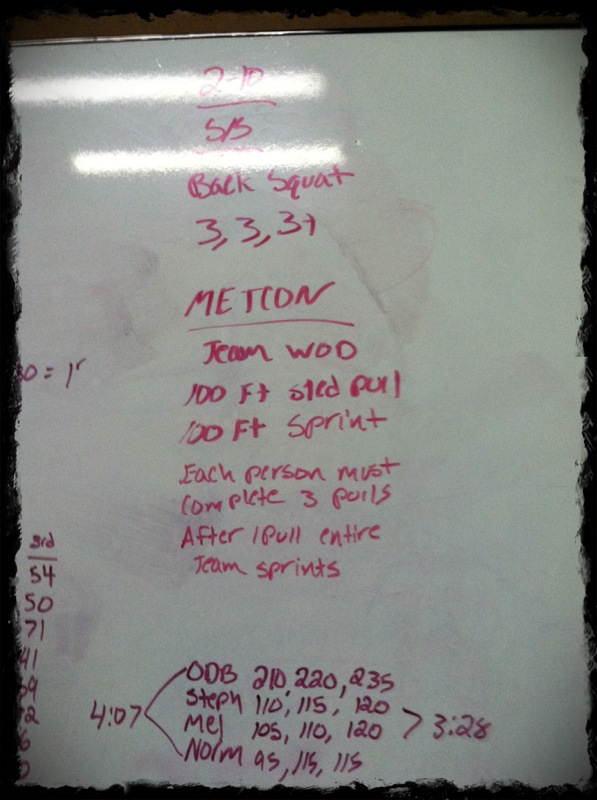 2-10
S/S
Back Squat
3, 3, 3+
METCON
Team WOD
100 Ft sled pull
100 Ft Sprint
Each person must
complete 3 pulls
After 1 pull entire
Team sprints
3rd
54
50
71
41
ODB 210, 220, 235
Steph 110, 115, 120
Mel 105, 110, 120
Norm 95, 115, 115
4:07
3:28